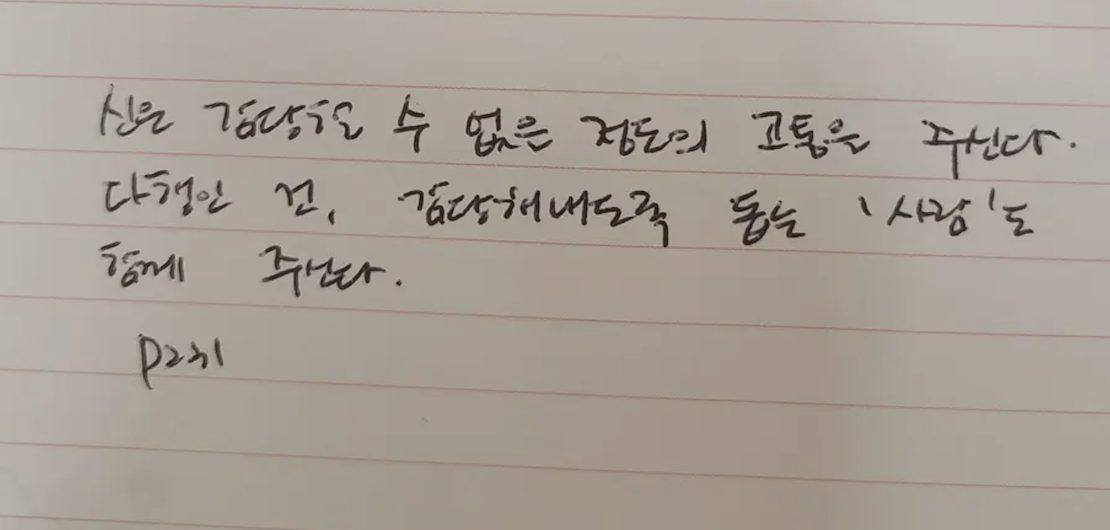 신은 감당할 수 없는 정도의 고통을 주신다.
다행인 건, 감당해내도록 돕는 '사람'도
함께 주신다.
p231